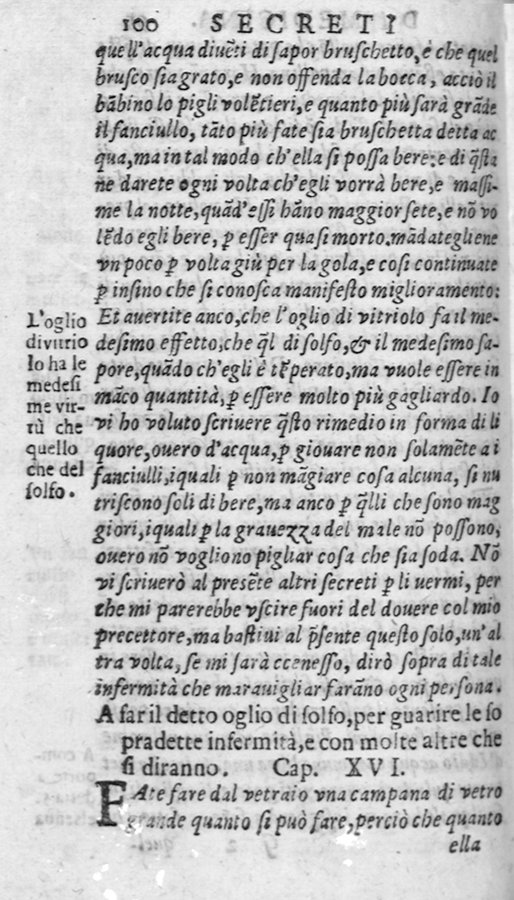 100 SECRETI
quell'acqua diuẽti di sapor bruschetto, e che quel
brusco sia grato, e non offenda la bocca, acciò il
bãbino lo pigli volẽtieri, e quanto più sarà grãde
il fanciullo, tãto più fate sia bruschetta detta ac
qua, ma in tal modo ch'ella si possa bere: e di q̃sta
ne darete ogni volta ch'egli vorrà bere, e massi-
me la notte, quãd'essi hãno maggior sete, e nõ vo
lẽdo egli bere, ꝑ esser quasi morto. mãdategliene
vn poco ꝑ volta giù per la gola, e cosi continuate
ꝑ insino che si conosca manifesto miglioramento:
Et auertite anco, che l'oglio di vitriolo fa il me-
desimo effetto, che q̃l di solfo, & il medesimo sa-
pore, quãdo ch'egli è tẽperato, ma vuole essere in
mãco quantità, ꝑ essere molto più gagliardo. Io
vi ho voluto scriuere q̃sto rimedio in forma di li
quore, ouero d'acqua, ꝑ giouare non solamẽte a i
fanciulli, i quali ꝑ non mãgiare cosa alcuna, si nu
triscono soli di bere, ma anco ꝑ q̃lli che sono mag
giori, i quali ꝑ la grauezza del male nõ possono,
ouero nõ vogliono pigliar cosa che sia soda. Nõ
vi scriuerò al presẽte altri secreti ꝑ li uermi, per
che mi parerebbe vscire fuori del douere col mio
precettore, ma bastiui al p̃sente questo solo, un'al
tra volta, se mi sarà ccenesso, dirò sopra di tale
infermità che marauigliar farãno ogni persona.
L'oglio
diuitrio
lo ha le
medesi
me vir-
tù che
quello
che del
solfo.
A far il detto oglio di solfo, per guarire le so
pradette infermità, e con molte altre che
si diranno. Cap. XVI.
FAte fare dal vetraio vna campana di vetro
grande quanto si può fare, perciò che quanto
ella